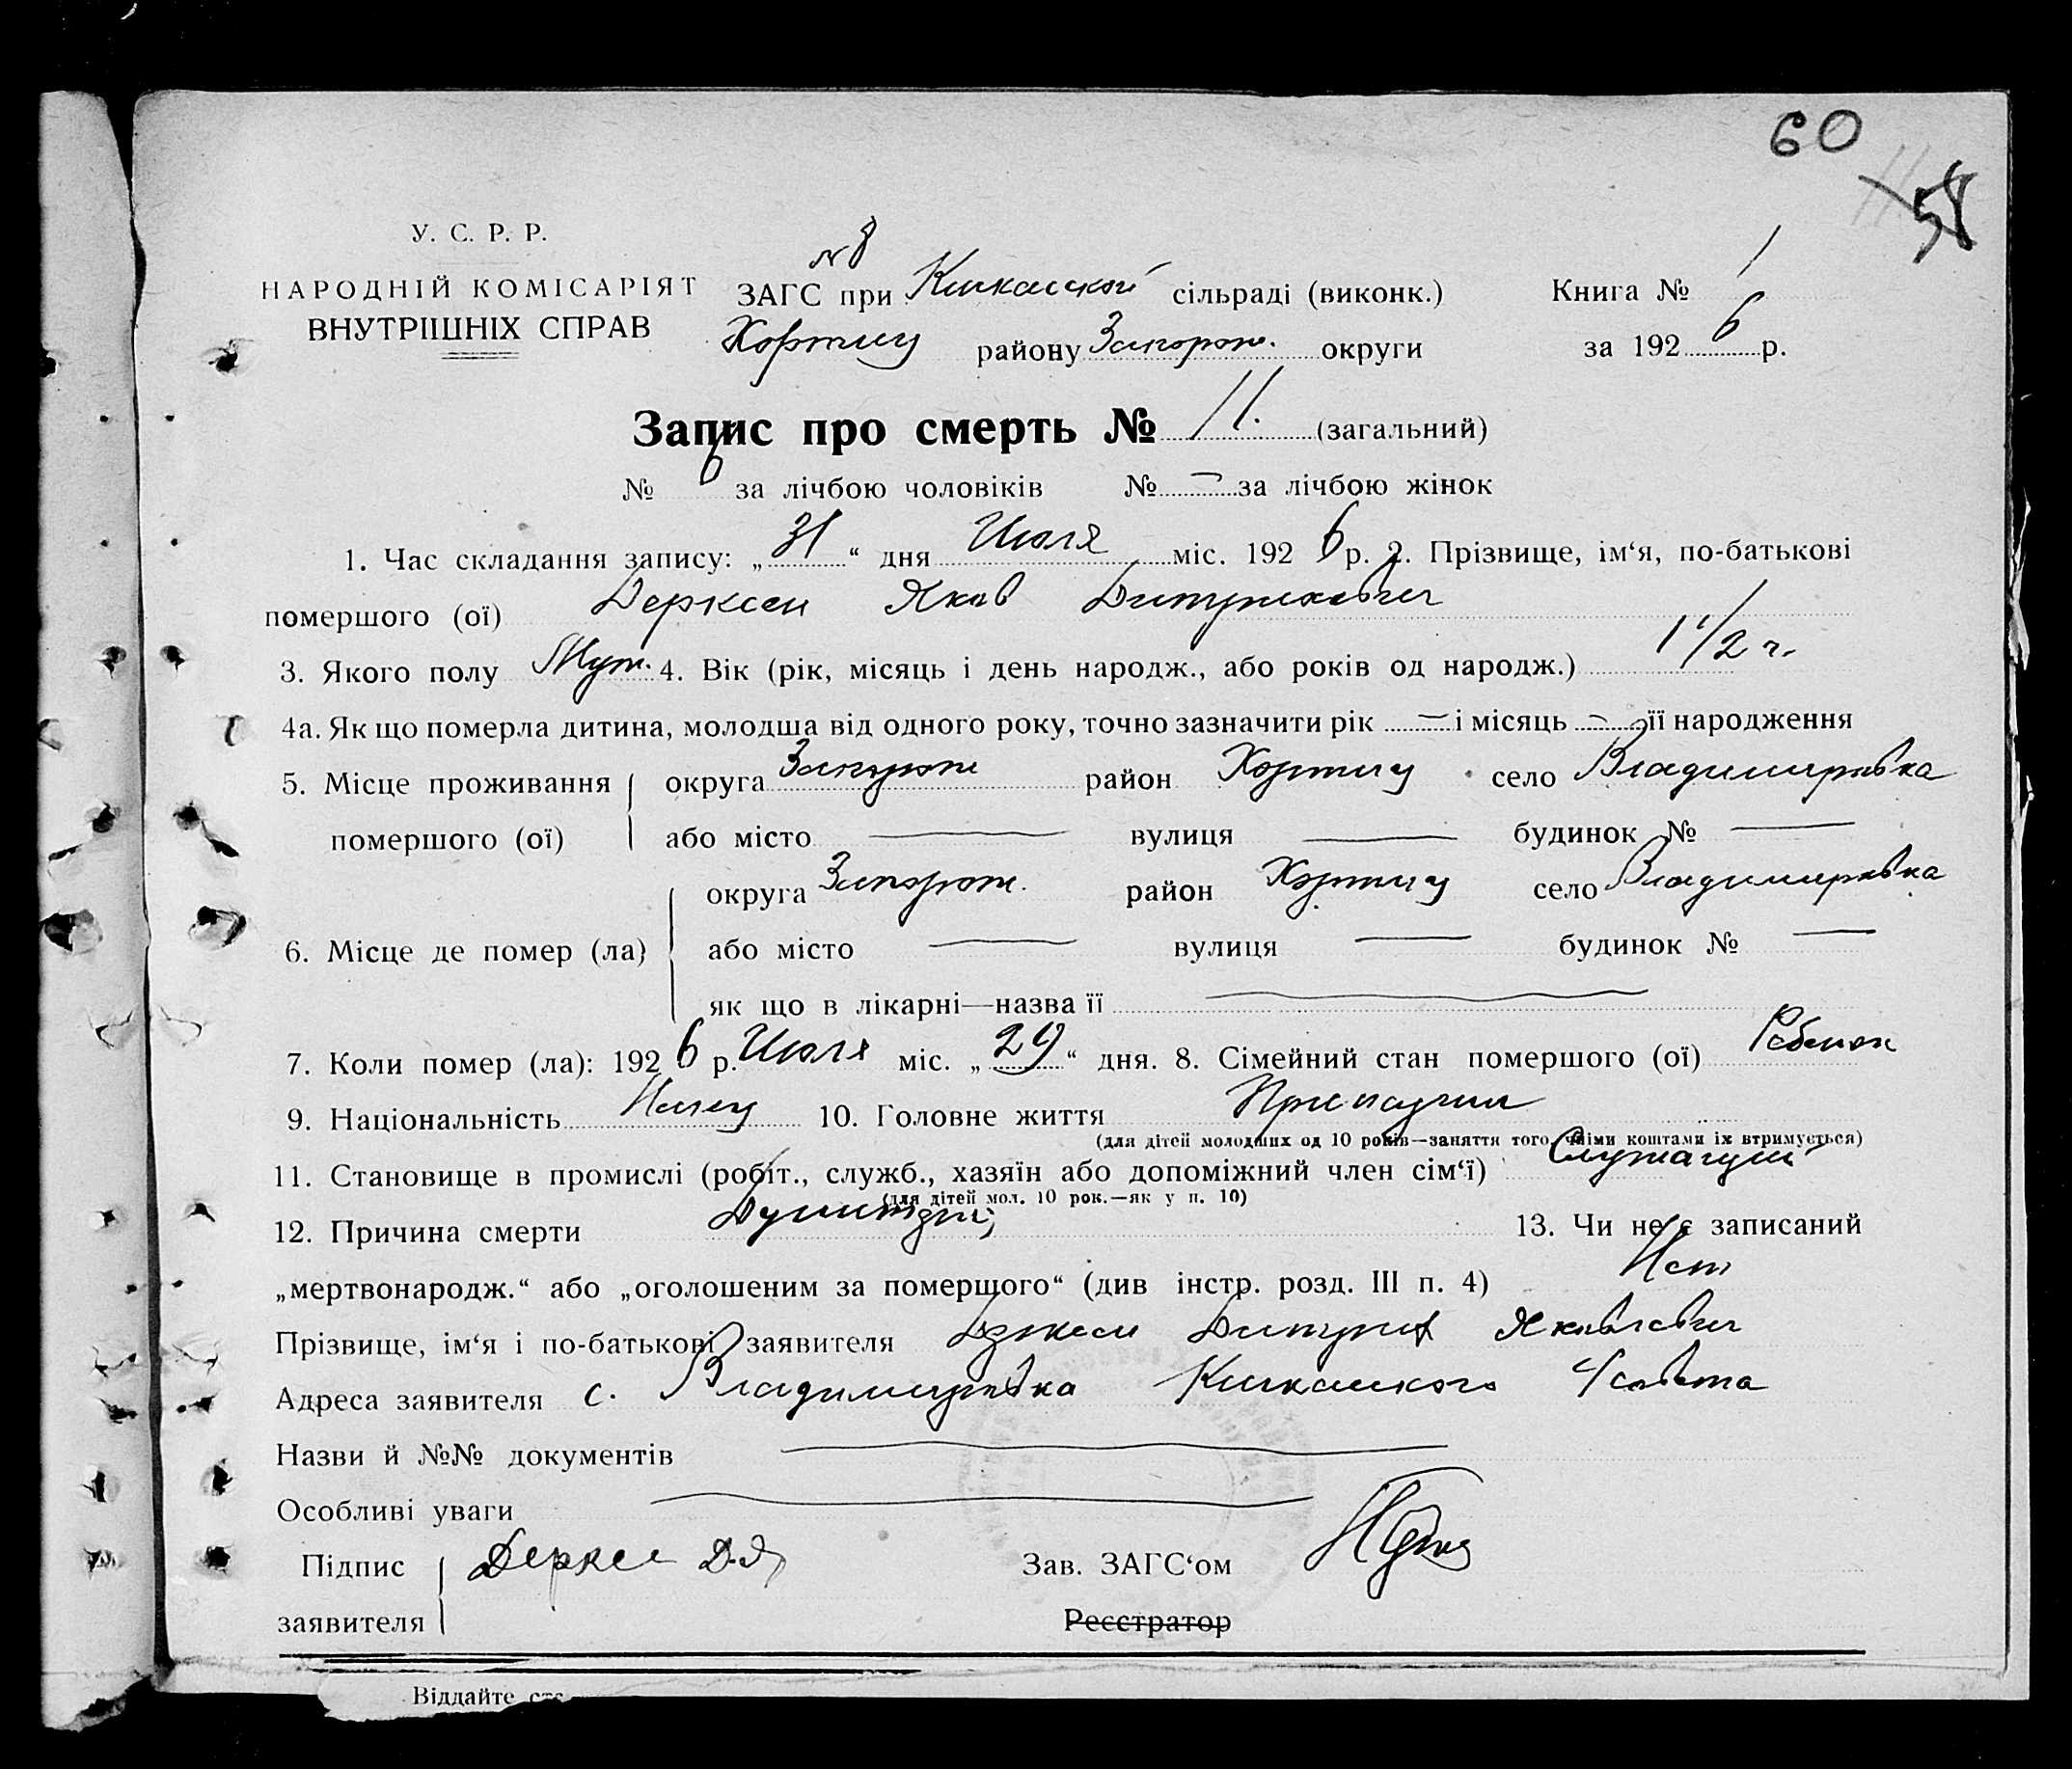 60
58
У. С. Р. Р.
НАРОДНІЙ КОМІСАРІЯТ
ВНУТРІШНІХ СПРАВ
№ 8
ЗАГС при Кичкасской сільраді (виконк.)
Хортиц району Запорож. округи
Книга № 1
за 1926 р.
Запис про смерть № 11. (загальний)
№ 6 за лічбою чоловіків № — за лічбою жінок
1. Час складання запису: „31“ дня Июля міс. 1926 р. 2. Прізвище, ім‘я, по-батькові
помершого (ої) Дерксен Яков Дитрихович
3. Якого полу Муж. 4. Вік (рік, місяць і день народж., або років од народж.) 1 1/2 г.
4а. Як що померла дитина, молодша від одного року, точно зазначити рік — і місяць — її народження
5. Місце проживання округа Запорож район Хортиц село Владимировка
помершого (ої) або місто — вулиця — будинок № —
округа Запорож. район Хортиц село Владимировка
6. Місце де помер (ла) або місто — вулиця — будинок № —
як що в лікарні—назва її —
7. Коли помер (ла): 1926 р. Июля міс. „29“ дня. 8. Сімейний стан помершого (ої) Ребенок
9. Національність Немец 10. Головне життя
(для дітей молодших од 10 років—заняття того, чиїми коштами їх втримується)
11. Становище в промислі (робіт., служб., хазяїн або допоміжний член сім‘ї) Служащий
(для дітей мол. 10 рок.—як у п. 10)
12. Причина смерти 13. Чи не є записаний
„мертвонародж.“ або „оголошеним за помершого“ (див інстр. розд. III п. 4) Нет
Прізвище, ім‘я і по-батькові заявителя Дерксен Дитрих Яковлевич
Адреса заявителя с. Владимировка Кичкасского Ч совета
Назви й №№ документів —
Особливі уваги —
Підпис Дерксе Д.Я Зав. ЗАГС‘ом
заявителя Реєстратор
Віддайте